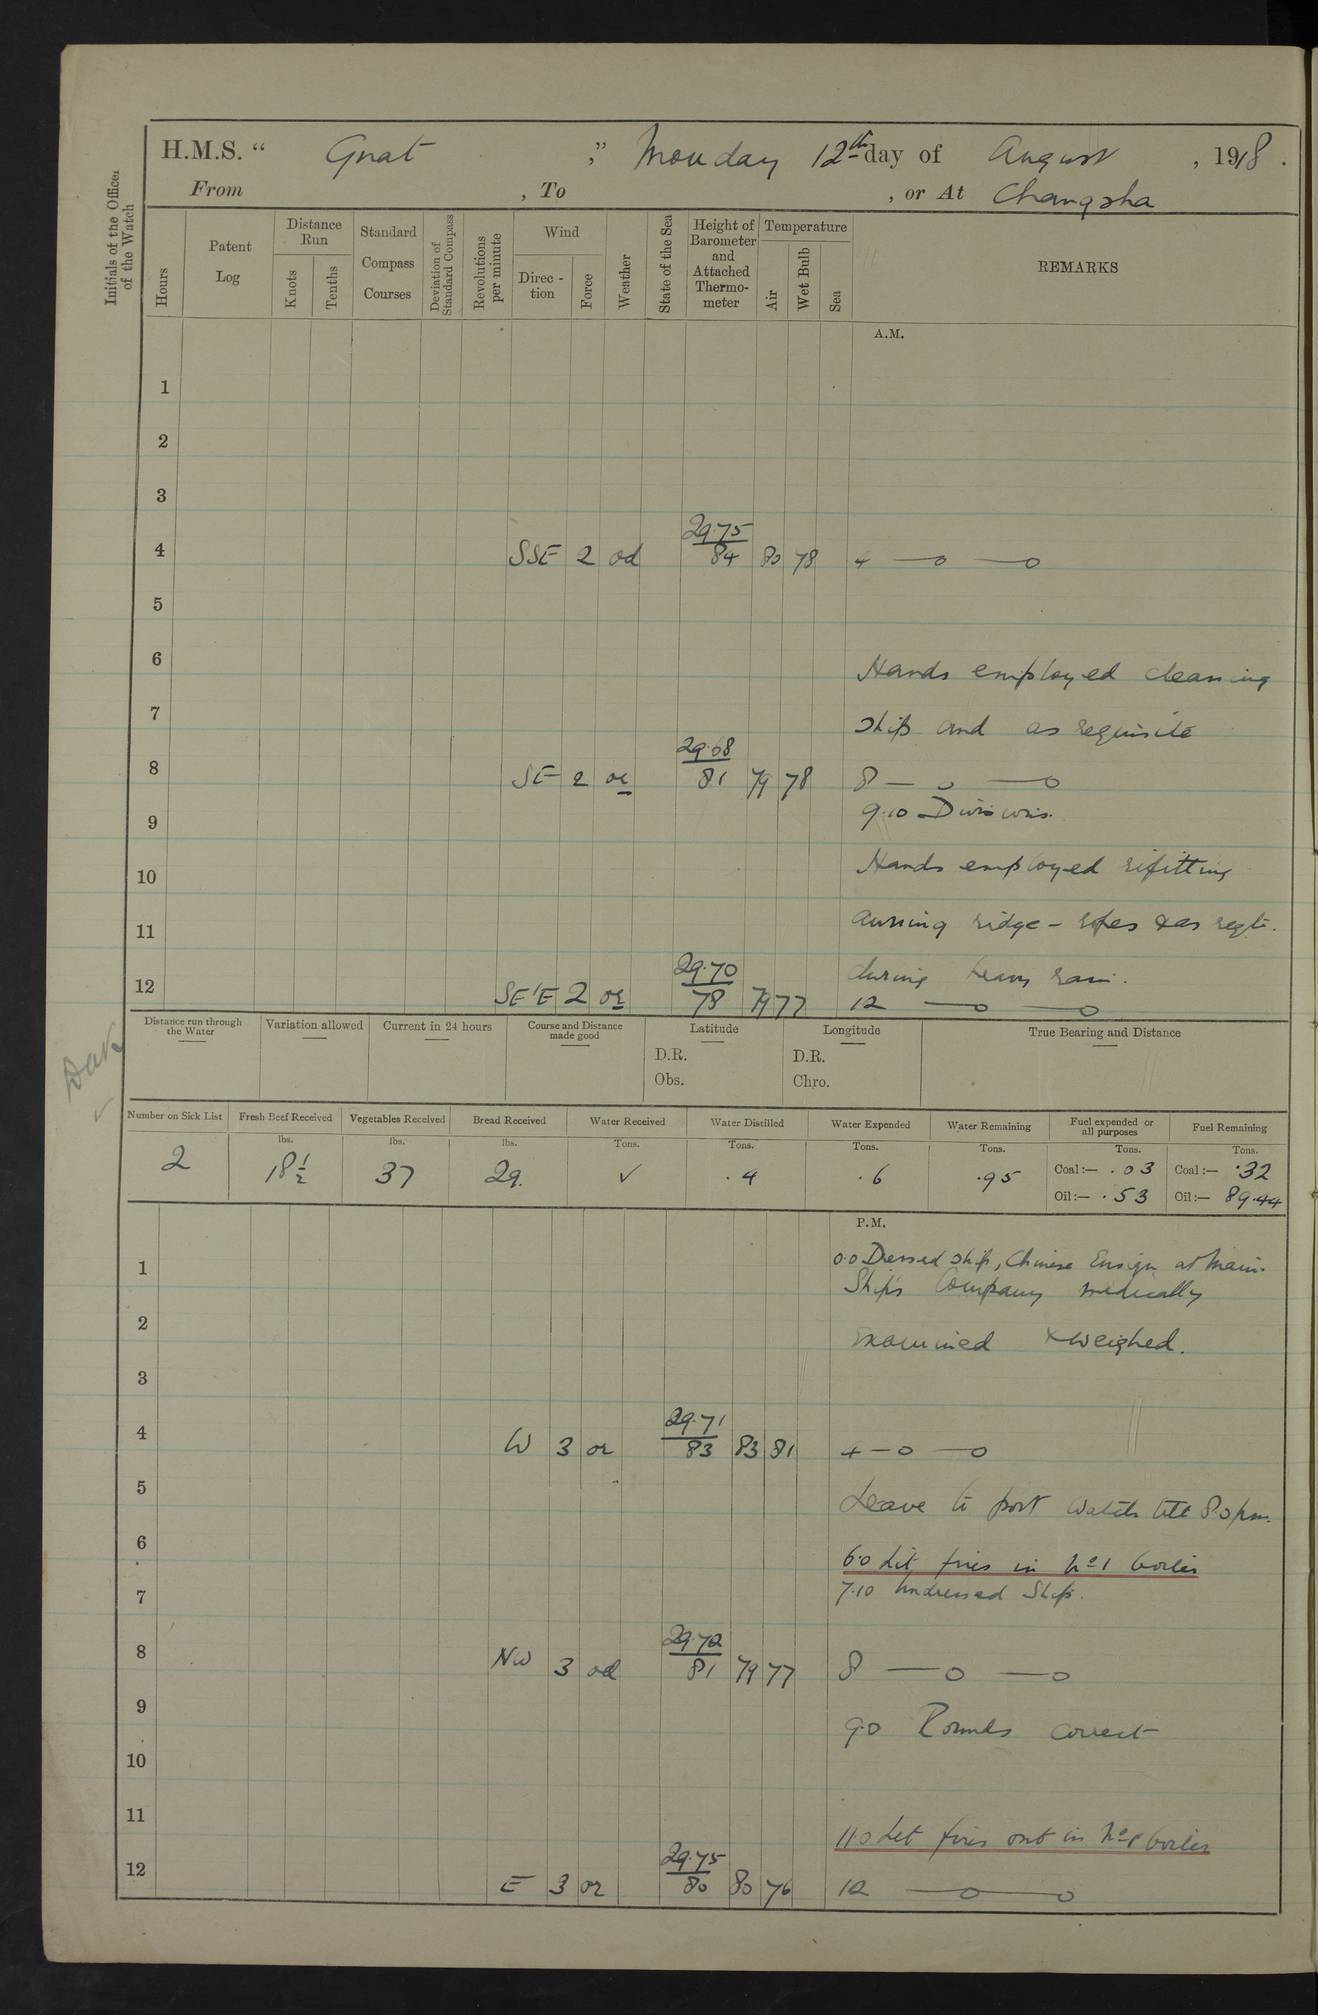 H.M.S. “ Gnat ,” Monday 12th day of August , 1918 .
From , To , or At Changsha
Initials of the Officer of the Watch
Hours
Patent Log
Distance Run
Knots
Tenths
Standard Compass Courses
Deviation of Standard Compass
Revolutions per minute
Wind
Direc-tion
Force
Weather
State of the Sea
Height of Barometer and Attached Thermo-meter
Temperature
Air
Wet Bulb
Sea
REMARKS
A.M.
1
2
3
29.75
4 SSE 2 od 84 80 78 4 —o —o
5
6 Hands employed cleaning
7 ship and as requisite
29.68
8 SE 2 or 81 79 78 8 — o —o
9.10 Divisions.
9
10 Hands employed refitting
11 awning ridge-ropes & as reqte.
29.70 during heavy rain.
12 SE'E 2 or 78 79 77 12 —o —o
Dark
Distance run through the Water
Variation allowed
Current in 24 hours
Course and Distance made good
Latitude
D.R.
Obs.
Longitude
D.R.
Chro.
True Bearing and Distance
Number on Sick List
Fresh Beef Received
Vegetables Received
Bread Received
Water Received
Water Distilled
Water Expended
Water Remaining
Fuel expended or all purposes
Fuel Remaining
lbs. lbs. lbs. Tons. Tons. Tons. Tons. Tons. Tons.
2 18½ 37 29. ✓ .4 .6 .95 Coal:— .03 Coal:— .32
Oil:— .53 Oil:— 89.44
P.M.
0.0 Dressed ship, Chinese Ensign at Main.
1 Ship's Company medically
2 examined & weighed.
3
29.71
4 W 3 or 83 83 81 4 —o —o
5 Leave to port watch till 8.0 pm.
6 6.0 Lit fires in No 1 boiler
7.10 Undressed Ship.
7
29.72
8 NW 3 od 81 79 77 8 —o —o
9 9.0 Rounds correct
10
11 11.0 Let fires out in No 1 boiler
29.75
12 E 3 or 80 80 76 12 —o —o